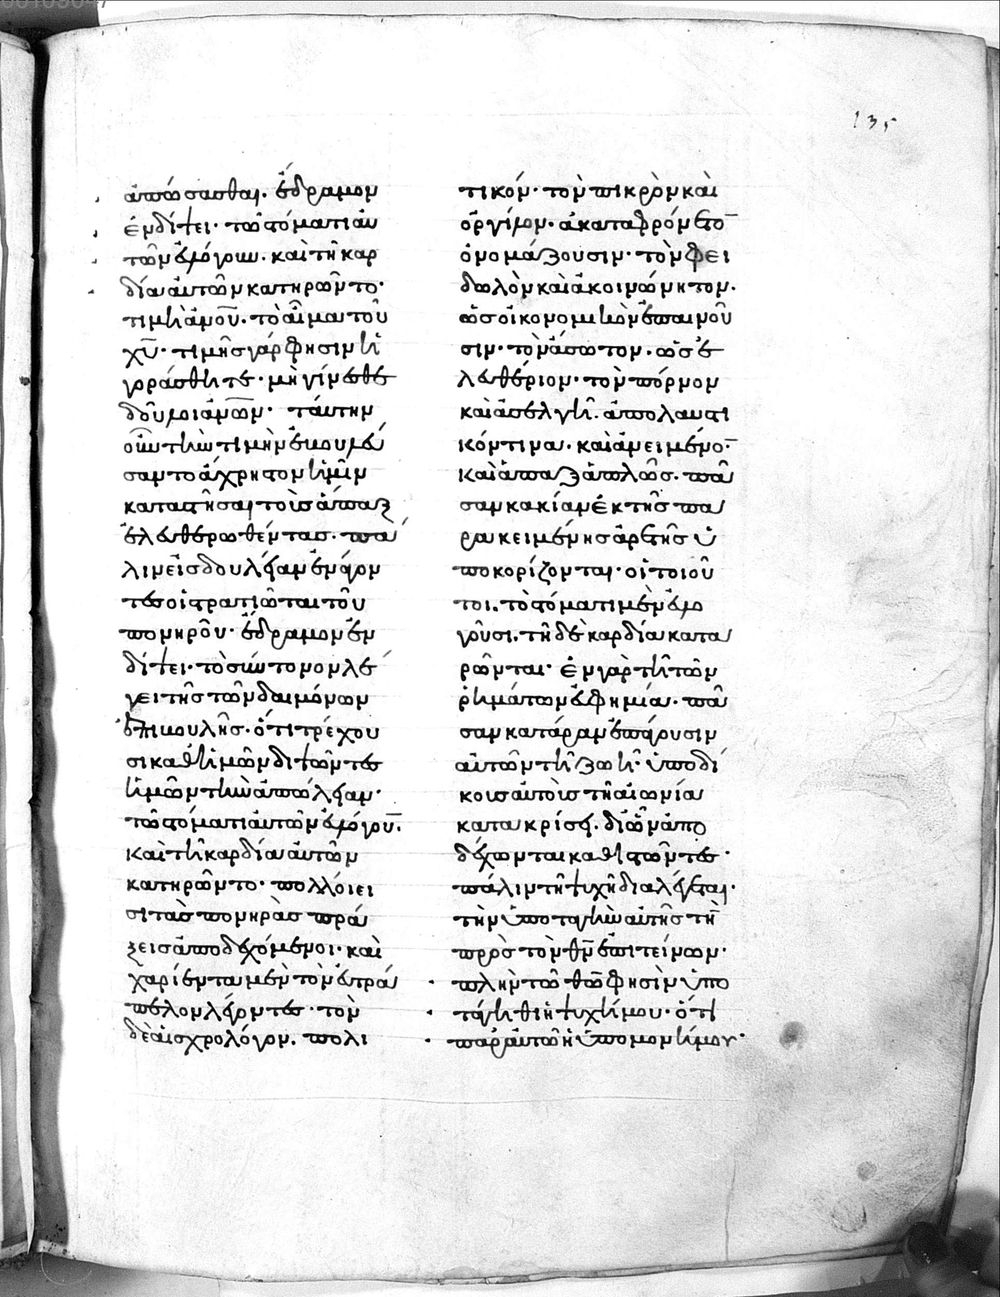 135
ἀπώσασθαι. ἔδραμον
ἐν δίψει· τῶ στόματι αὐ
τῶν εὐλόγουν. καὶ τῆ καρ
δία αὐτῶν κατηρῶντο·
τιμὴ ἀνοῦ. τὸ αἷμα τοῦ
χυ· τιμῆς γάρ φησιν ἠ
γοράσθητε· μὴ γίνεσθε
δοῦλοι ἀνων· ταύτην
οὖν τὴν τιμὴν ἐβουλεύ
σαντο ἄχρηστον ἡμῖν
καταστῆσαι τοῖς ἅπαξ
ἐλευθερωθέντας. πά
λιν εἰς δουλείαν ἐνάγον
τες οἱ στρατιῶται τοῦ
πονηροῦ· ἔδραμον ἐν
δίψει· τὸ σύντονον λέ
γει τῆς τῶν δαιμόνων
ἐπιβουλῆς· ὅτι τρέχου
σι καθ ἡμῶν διψῶντες
ἡμῶν τὴν ἀπώλειαν·
τῶ στόματι αὐτῶν εὐλόγουν.
καὶ τῆ καρδία αὐτῶν
κατηρῶντο· πολλοὶ εἰ
σι τὰς πονηρὰς πρά
ξεις ἀποδεχόμενοι· καὶ
χαρίεντα μὲν τὸν εὐτρά
πελον λέγοντες· τὸν
δὲ αἰσχρολόγον. πολι
τικόν· τὸν πικρὸν καὶ
ὀργίλον· ἀκαταφρόνητο
ὀνομάζουσιν· τὸν φει
δωλὸν καὶ ἀκοινώνητον.
ὡς οἰκονομικὸν ἐπαινοῦ
σιν· τὸν ἄσωτον. ὡς ἐ
λευθέριον· τὸν πόρνον
καὶ ἀσελγῆ. ἀπολαυστι
κόν τινα. καὶ ἀνειμένο·
καὶ ἁπαξαπλῶς. πᾶ
σαν κακίαν ἐκ τῆς πα
ρακειμένης ἀρετῆς ὑ
ποκορίζονται· οἱ τοιοῦ
τοι. τὸ στόματι μὲν εὐλο
γοῦσι. τῆ δὲ καρδία κατα
ρῶνται· ἐν γὰρ τῆ τῶν
ῥημάτων εὐφημία. πᾶ
σαν κατάραν ἐπάγουσιν
αὐτῶν τῆ ζωῆ· ὑποδί
κους αὐτοὺς τῆ αἰωνία
κατακρίσει. δι ὧν ἀπο
δέχωνται καθιστῶντες·
πάλιν τῆ ψυχῆ διαλέγεται·
τὴν ὑποταγὴν αὐτῆς τὴ
πρὸς τὸν θν ἐπιτείνων·
πλὴν τῶ θῶ φησὶν ὑπο
τάγηθι ἡ ψυχή μου· ὅτι
παρ αὐτῶ ἡ ὑπομονή μου·